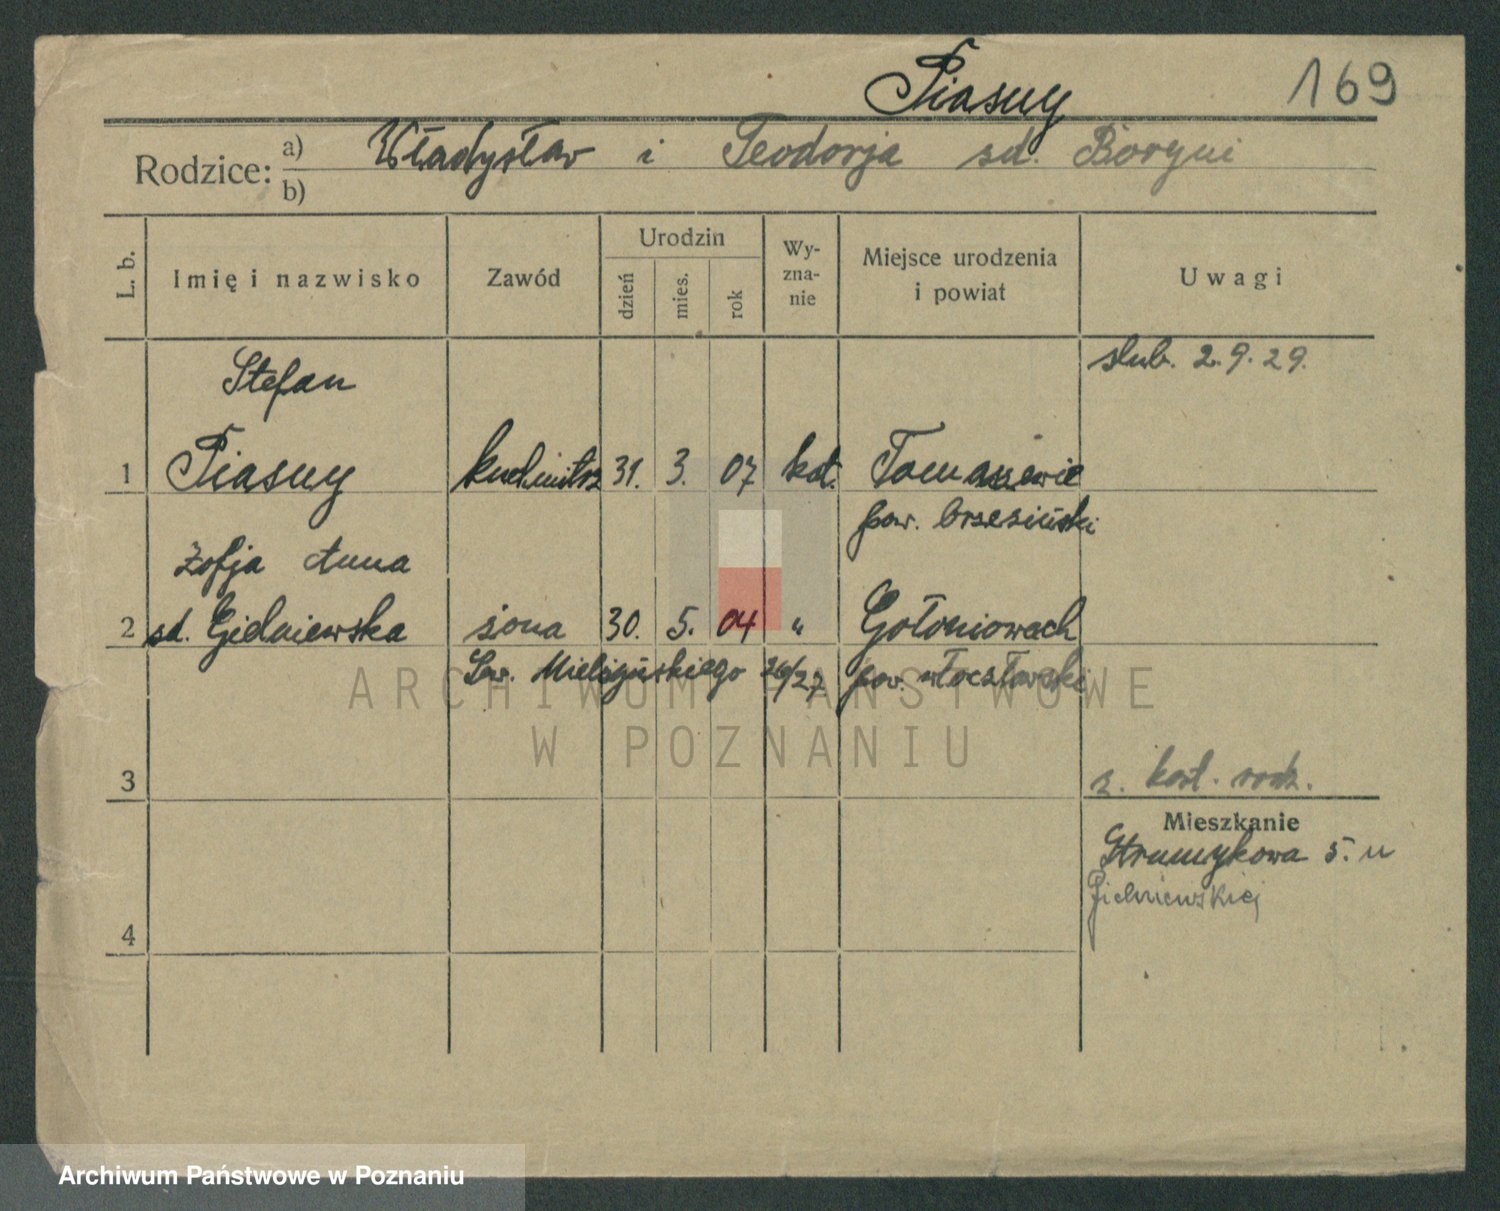 Piasny 169
Rodzice: a) Władysław i Teodorja zd. Boryni
b)
L. b. Imię i nazwisko Zawód Urodzin dzień mies. rok Wy-zna-nie Miejsce urodzenia i powiat Uwagi
Stefan ślub. 2.9.29.
1 Piasny kuchmistrz 31. 3. 07 kat. Tomaszewie
pow. brzeziński
Zofja Anna
2 zd. Gielniewska żona 30. 5. 04 " Gołoniowach
Sew. Mielżyńskiego 26/27 pow. włocławski
ARCHIWUM PAŃSTWOWE
W POZNANIU
3 z. rodz.
Mieszkanie
Strumykowa 5. u
Gielniewskiej
4
Archiwum Państwowe w Poznaniu